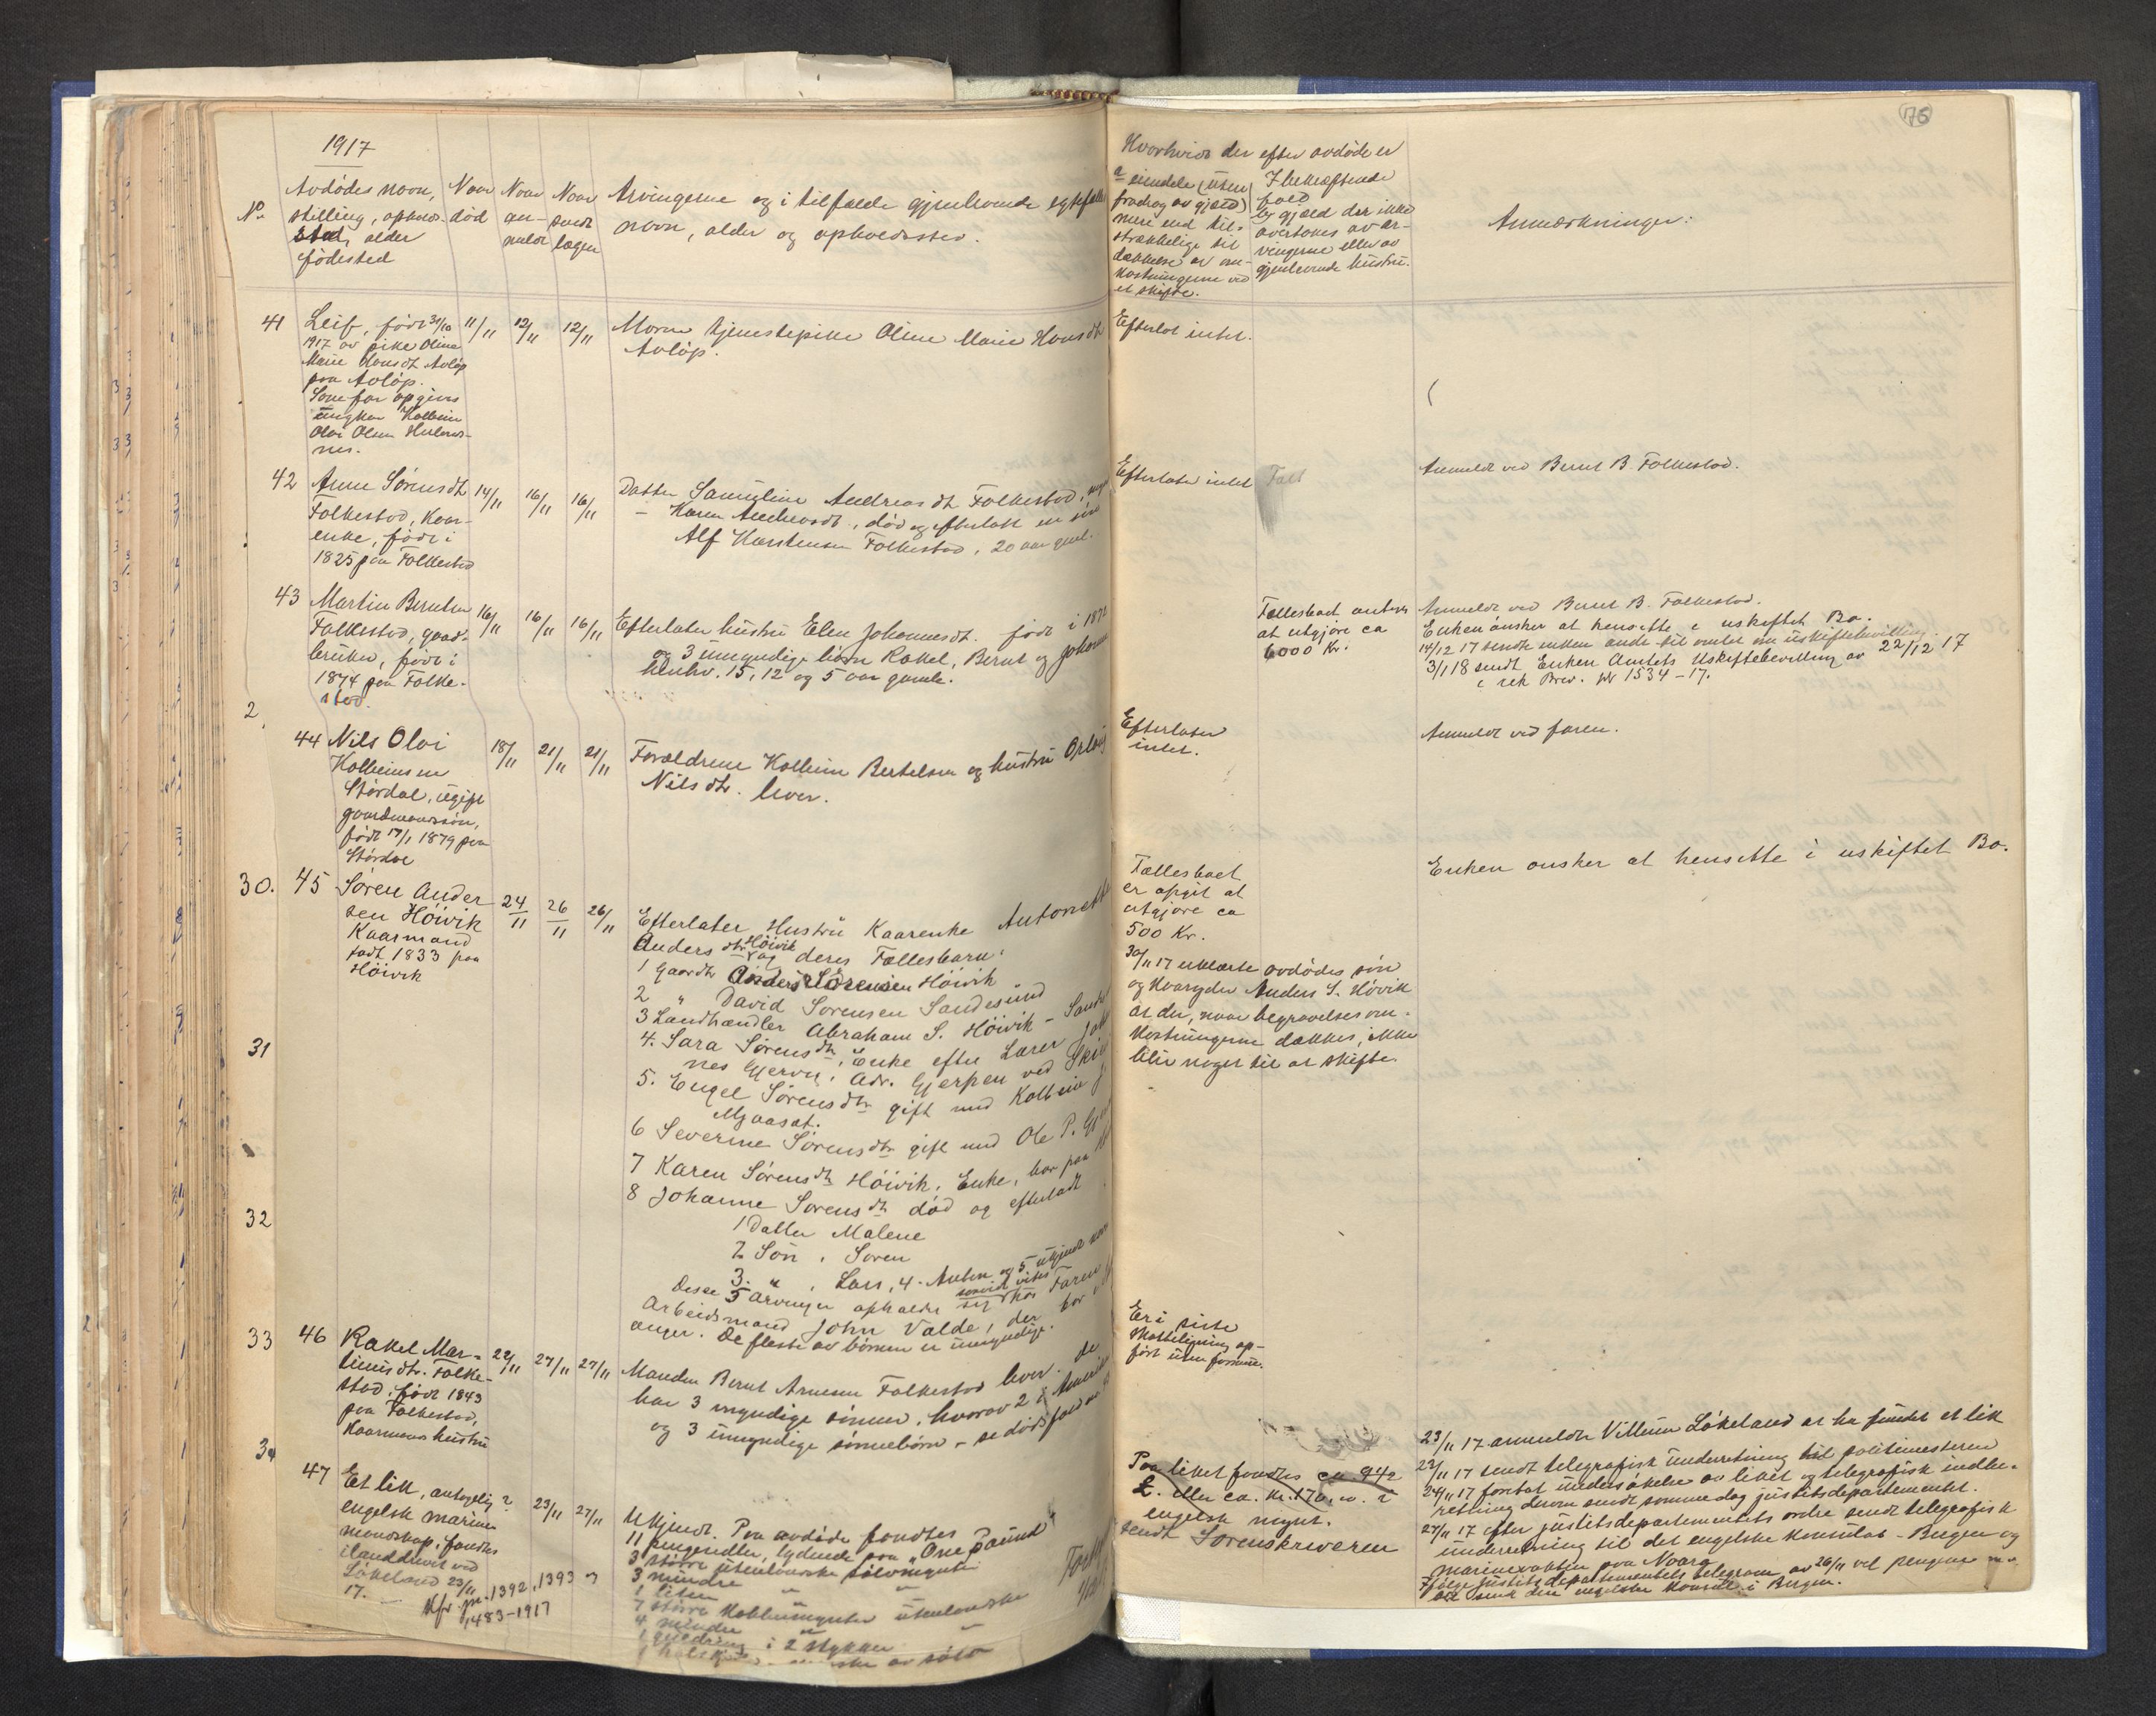 1917
No.
Avdødes navn,
stilling, opholds-
sted, alder
fødested
Naar
død
Naar
an-
meldt
Naar
protokol
lagen
Arvingerne og i tilfælde gjenlevende egtefælle
navn, alder og opholdssted.
41
Leif, født 31/10
1917 av pike Oline
Marie Hansdt. Avløp
paa Avløp.
Som far opgives
ungkar Kolbein
Olai Olsen
nes.
11/11
12/11
12/11
Moren tjenestepike Oline Marie Hansdt
Avløp.
42
Anne Sørensdt
Folkestad, kaar-
enke, født i
1825 paa Folkestad
14/11
16/11
16/11
Datter Samuline Andreasdt Folkestad,
— Karen Andreasdt., død og efterlatt en søn
Alf Karstensen Folkestad, 20 aar gml.
43
Martin Berntsen
Folkestad, gaard-
bruker, født i
1874 paa Folke-
stad.
16/11
16/11
16/11
Efterlater hustru Elen Johannesdt. født i 1872
og 3 umyndige børn Rakel, Bernt og Johan
henhv. 15, 12 og 5 aar gamle.
2
44
Nils Olai
Kolbeinsen
Størdal, ugift
gaardmandssøn,
født 17/1 1879 paa
Størdal
18/11
21/11
21/11
Forældrene Kolbein Bertelsen og hustru
Nilsdtr. lever.
30.
45
Søren Ander
sen Höivik
Kaarmand
født 1833 paa
Höivik
24/11
26/11
26/11
Efterlater Hustru Kaarenke Antonette
Andersdtr. Höivik og deres Fællesbarn:
1 Gaardbr Anders Sørensen Höivik
2 " David Sørensen Sandesund
3 Landhandler Abraham S. Höivik –
31
4. Sara Sørensdtr, Enke efter Lærer
nes Gjervu, Adr. Gjerpen ved
5. Engel Sørensdtr gift med Kolbein
Myaasat.
6 Severine Sørensdtr gift med Ole P.
7 Karen Sørensdtr Höivik, Enke, bor paa
8 Johanne Sørensdtr død og efterladt
32
1 Datter Malene
2 Søn, Søren
3. " , Lars, 4. Anton og 5 ukjendt navn
Disse 5 arvinger opholder sig saavidt vites hos Faren
Arbeidsmand John Valde, der bor
anger. De fleste av børnene er umyndige.
33
46
Rakel Mar-
tinusdtr. Folke-
stad, født 1843
paa Folkestad,
Kaarmans hustru
22/11
27/11
27/11
Manden Bernt Arnesen Folkestad lever. De
har 3 myndige sønner, hvorav 2 i Amerika
og 3 umyndige sønnebørn – se dødsfald
34
47
Et lik, antagelig
engelsk marine
mandskap, fandtes
ilanddrevet ved
Løkeland 23/11
17.
Kfr. jnr. 1392, 1393 og
1483-1917
?
23/11
27/11
Ukjendt. Paa avdøde fandtes
11 pengesedler, lydende paa „One Pound"
3 større utenlandske sølvmynter
3 mindre " "
1 liten "
7 større Kobbermynter utenlandske
4 mindre " "
1 guldring i 2 stykker
av sølv
176
Hvorhvidt der efter avdøde er
a eiendele (uten
fradrag av gjæld)
mere end til-
strækkelige til
dækkelse av om-
kostningerne ved
et skifte.
I bekræftende
fald
b) gjæld der ikke
overtakes av ar-
vingerne eller av
gjenlevende hustru.
Anmerkninger:
Efterlot intet.
Efterlater intet
Anmeldt ved Bernt B. Folkestad.
Fællesboet antages
at utgjøre ca
6000 Kr.
Anmeldt ved Bernt B. Folkestad.
Enken ønsker at hensitte i uskiftet Bo.
14/12 17 sendt enken andr. til amtet om uskiftebevilling.
3/1 18 sendt Enken Amtets Uskiftebevilling av 22/12 17
i rek Brev. Nr 1534-17.
Efterlater
intet.
Anmeldt ved faren.
Fællesboet
er opgit at
utgjøre ca
500 Kr.
Enken ønsker at hensitte i uskiftet Bo.
30/11 17 erklærte avdødes søn
og Kaaryder Anders S. Høivik
at der, naar begravelsesom-
kostningerne dækkes, ikke
blir noget til at skifte.
Er i siste
skatteligning op-
ført uten formue.
Paa liket fandtes ca 9 1/2
£. eller ca. kr. 170,00 i
engelsk mynt.
sendt Sorenskriveren
23/11 17 anmeldte Villum Løkeland at ha fundet et lik
23/11 17 sendt telegrafisk underretning til politimesteren
24/11 17 foretat undersøkelse av liket og telegrafisk indbe-
retning derom sendt samme dag justitsdepartementet.
27/11 17 efter justitsdepartementets ordre sendt telegrafisk
underretning til det engelske konsulat – Bergen og
marinevakten paa
Ifølge justitsdepartementets telegram av 26/11 vil pengene m.v.
bli sendt den engelske konsul i Bergen.